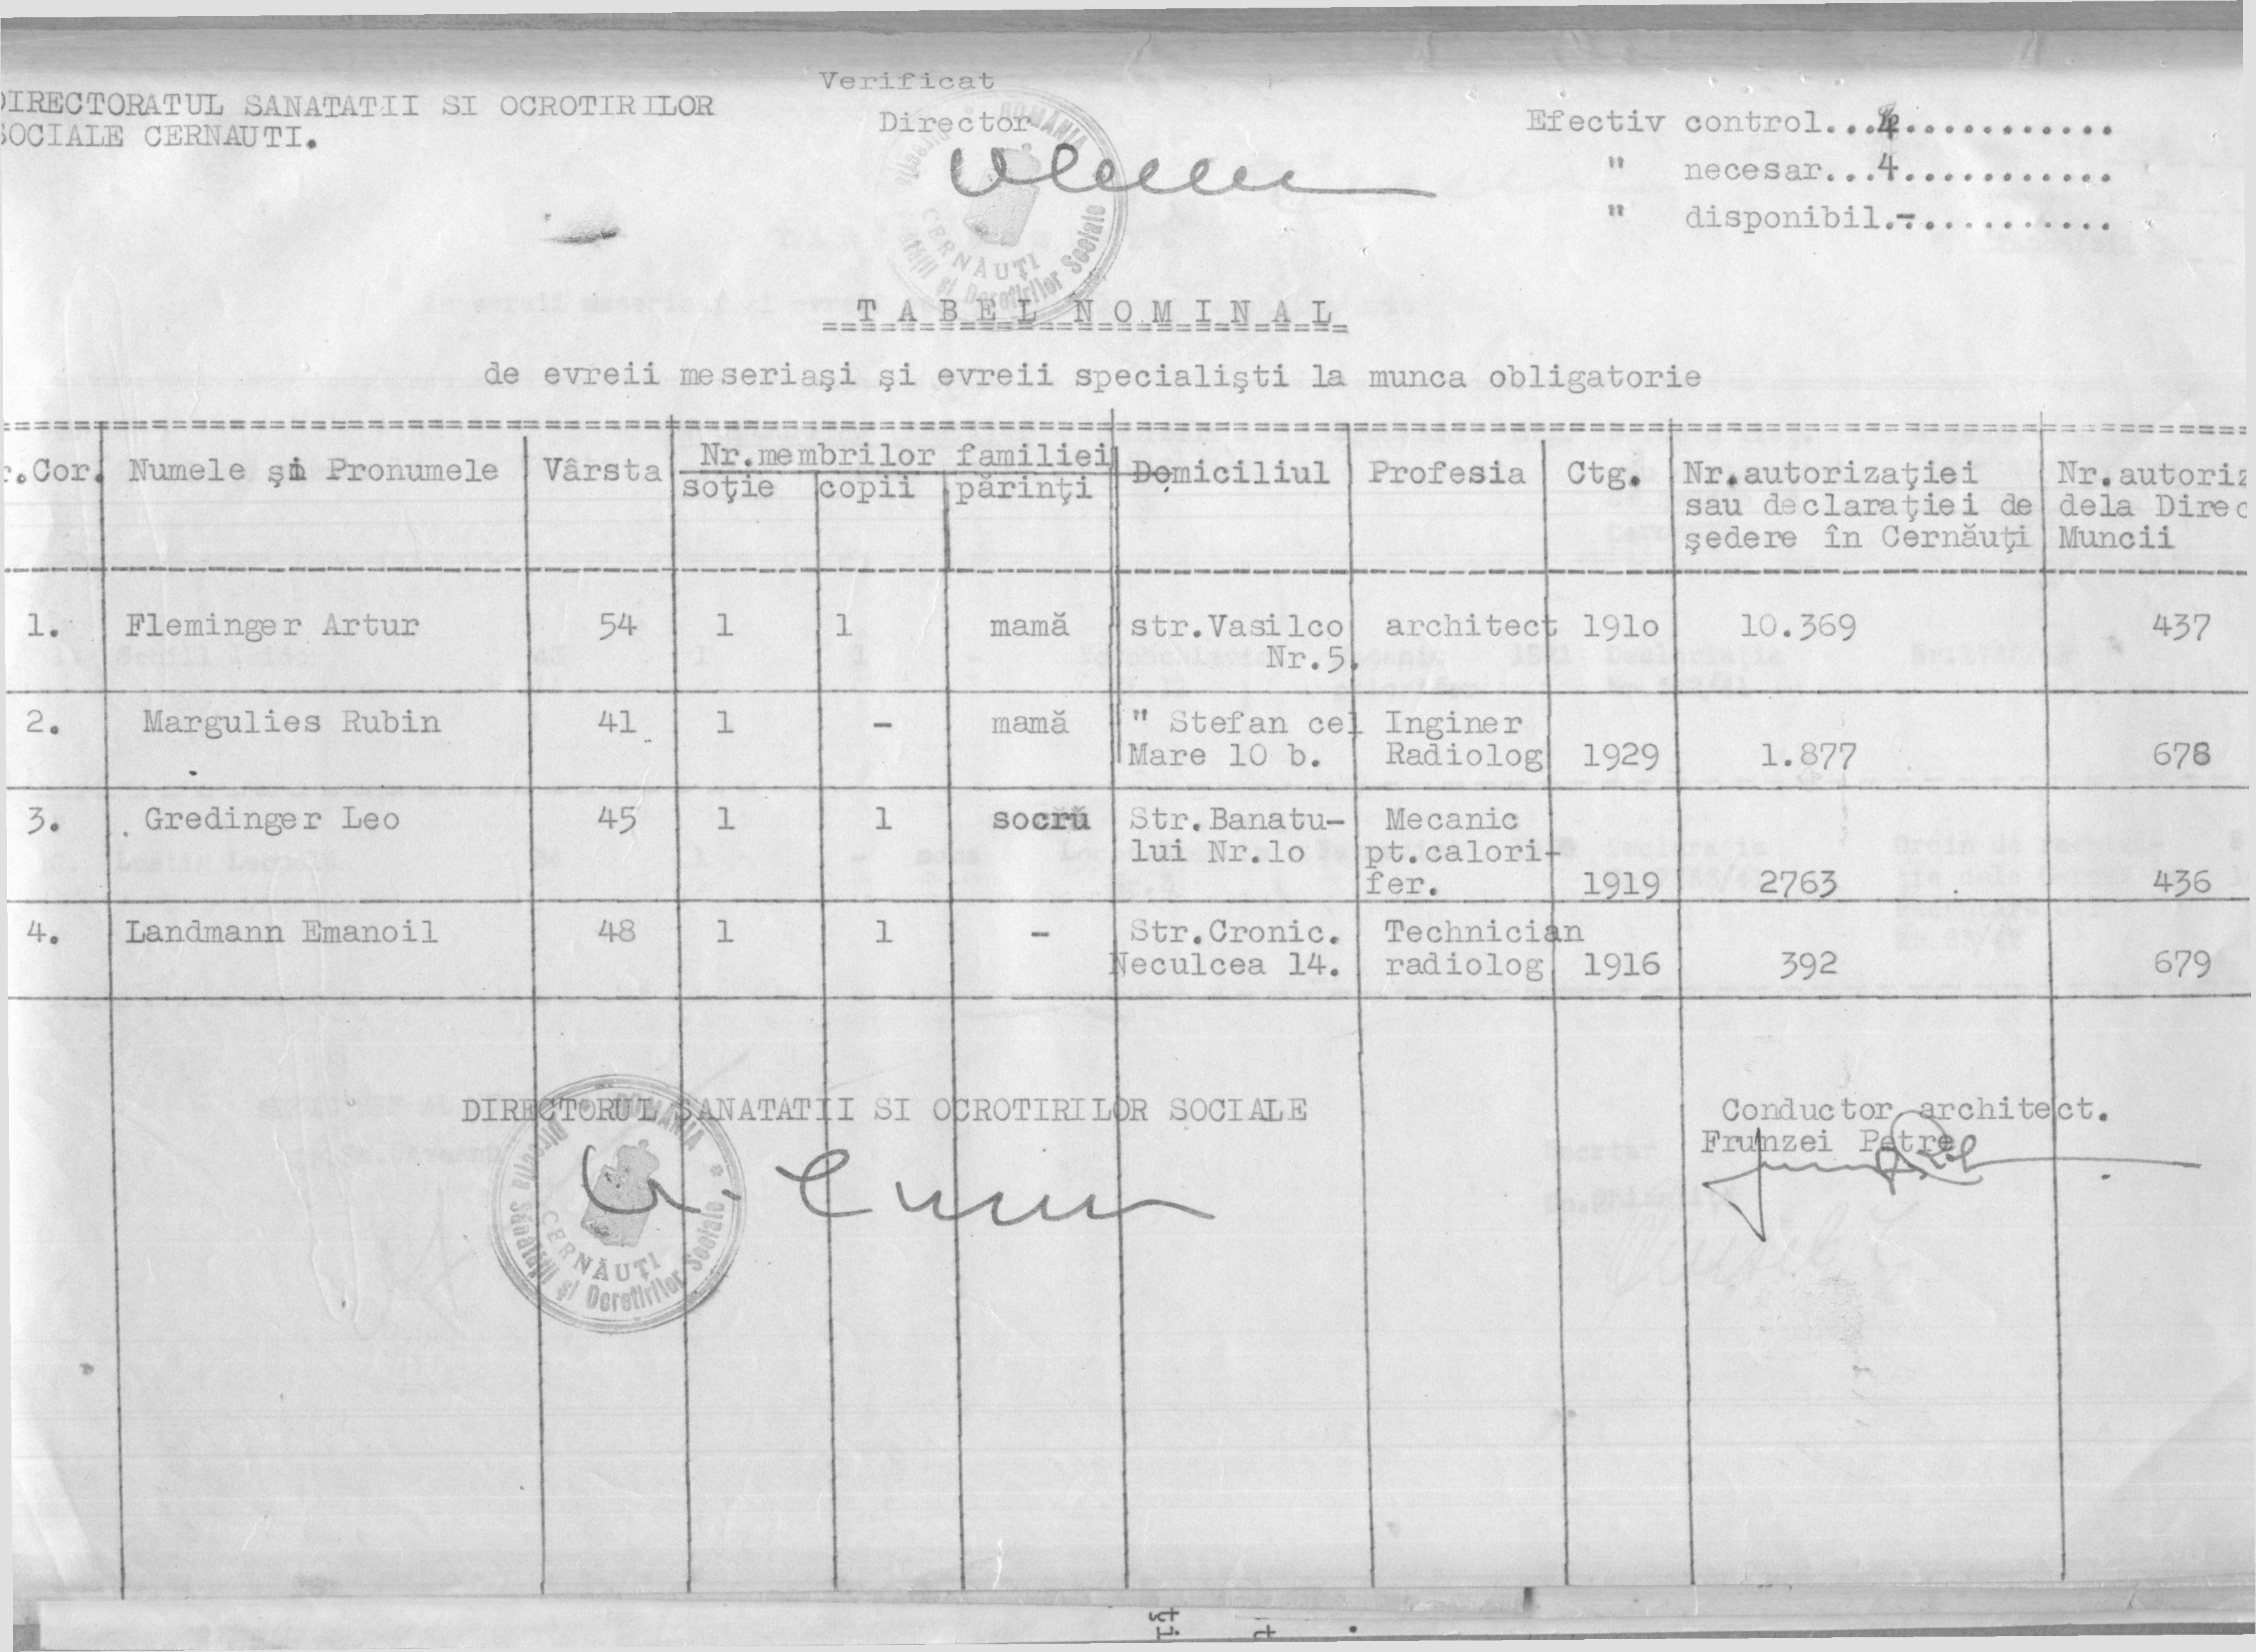 Verificat
DIRECTORATUL SANATATII SI OCROTIRILOR
SOCIALE CERNAUTI.
Director
Efectiv control...4...........
" necesar...4...........
" disponibil.-...........
ROMANIA
CERNĂUŢI
şi Ocrotirilor Sociale
TABEL NOMINAL
de evreii meseriaşi şi evreii specialişti la munca obligatorie
r.Cor. Numele şi Pronumele Vârsta Nr.membrilor familiei Domiciliul Profesia Ctg. Nr.autorizaţiei Nr.autoriz
soţie copii părinţi sau declaraţiei de dela Direc
şedere în Cernăuţi Muncii
1. Fleminger Artur 54 1 1 mamă str.Vasilco architect 191o 10.369 437
Nr.5.
2. Margulies Rubin 41 1 - mamă " Stefan cel Inginer
Mare 10 b. Radiolog 1929 1.877 678
3. Gredinger Leo 45 1 1 socru Str.Banatu- Mecanic
lui Nr.1o pt.calori-
fer. 1919 2763 436
4. Landmann Emanoil 48 1 1 - Str.Cronic. Technician
Neculcea 14. radiolog 1916 392 679
DIRECTORUL SANATATII SI OCROTIRILOR SOCIALE
Conductor architect.
Frunzei Petre
ROMANIA
Direcţia Sănătăţii şi Ocrotirilor Sociale
CERNĂUŢI